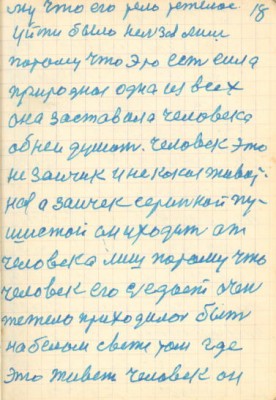 му что его тело тетелое 18
уйти было нелзя лиш
потому что это ест сила
природноя одна из всех
она заставала человека
об ней думат. человек это
не заичик и не какоя живот-
ноя а заичек серинкой пу-
шистой он уходит от
человека лиш потому что
человек его сьедает очен
тетело приходилоя быт
на белом свете том где
это живет человек он